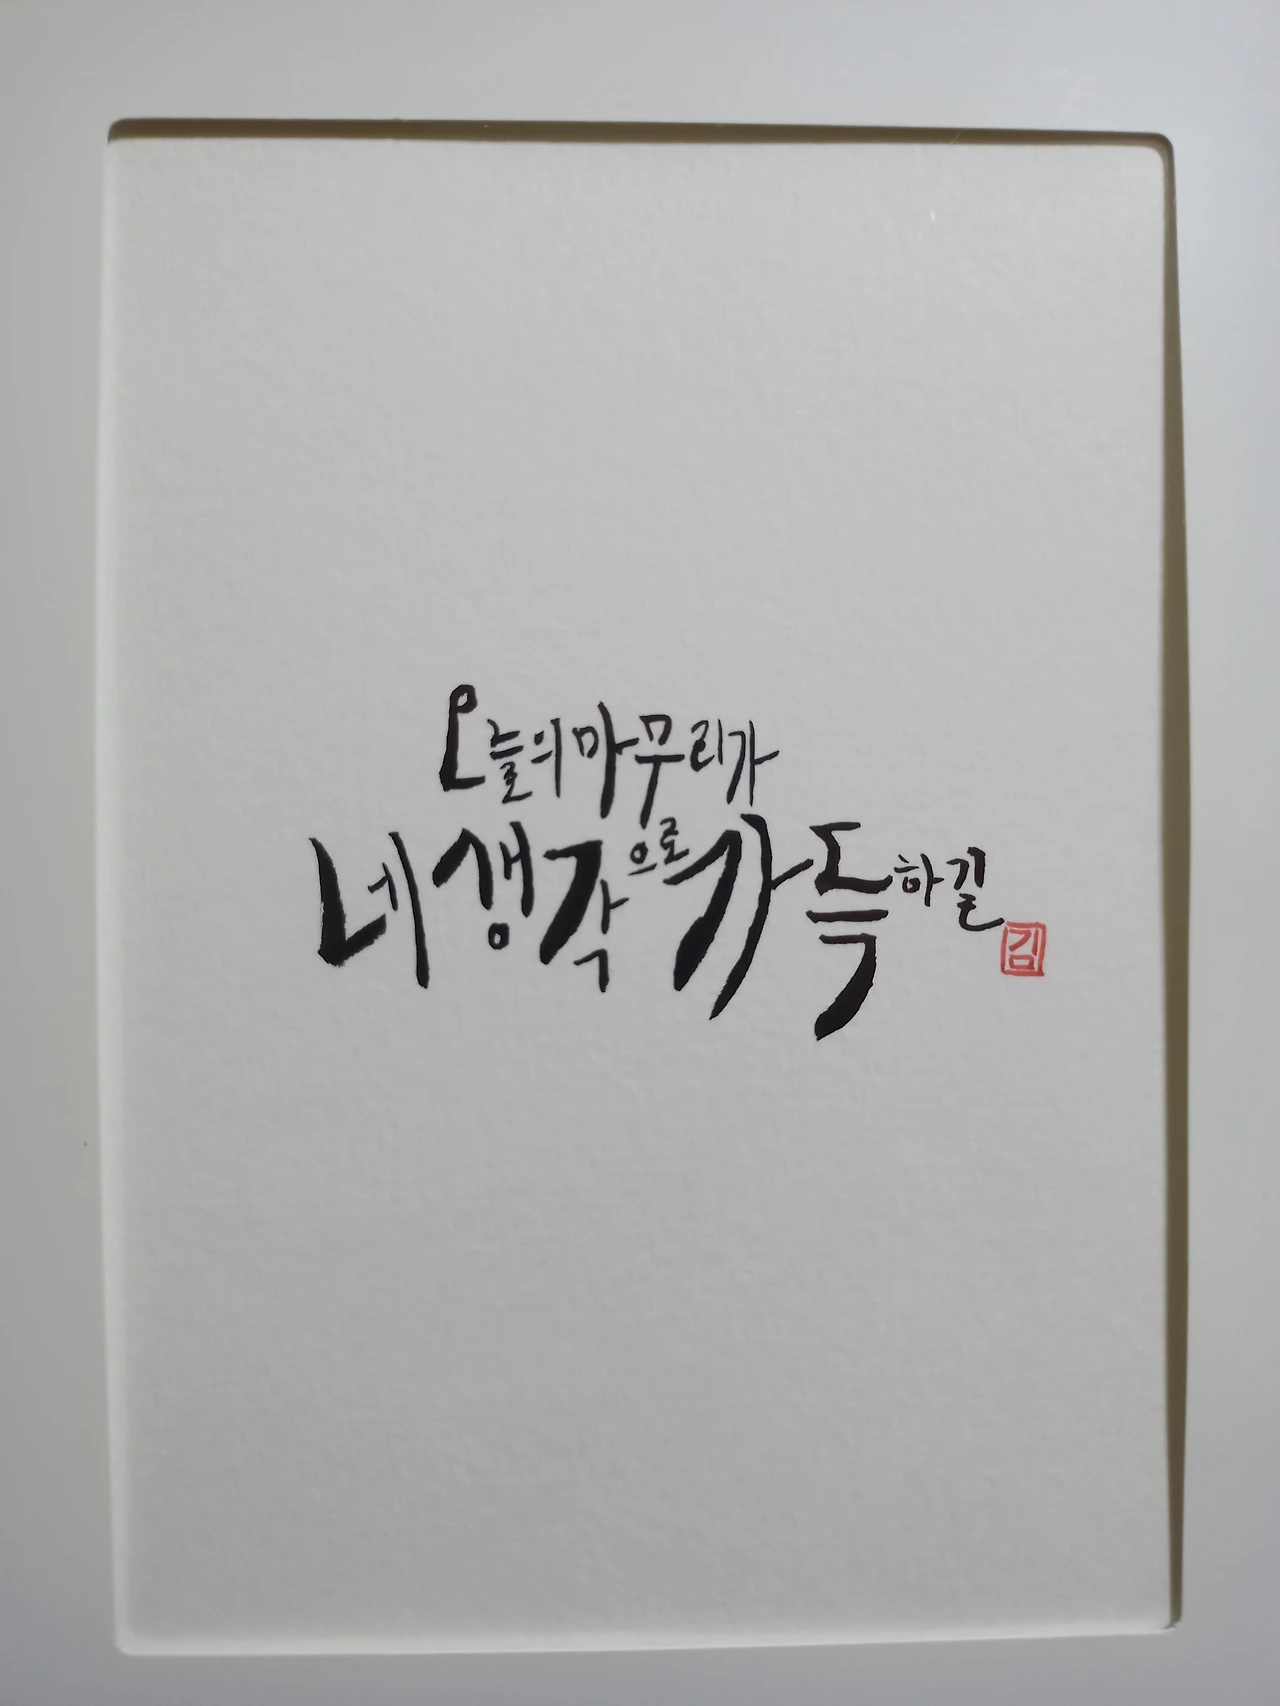 오늘의 마무리가
네 생각으로 가득하길
김